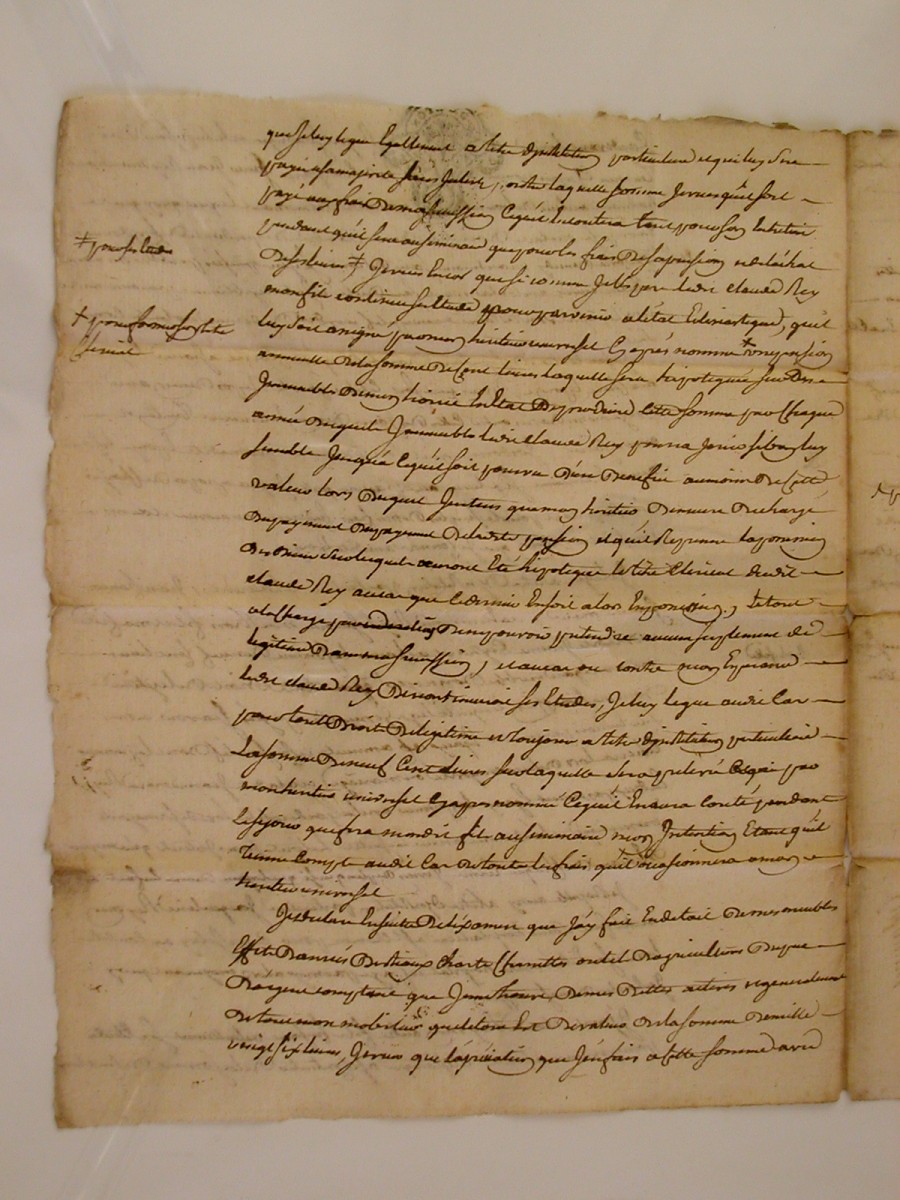 que je luy legue Egallement a titre d'institution particuliere et qui luy sera
payée a sa majorité outre laquelle somme Je veux qu'il soit
payé aux frais de ma succession Ce qu'il En coutera tant pour son Entretien
pendant qu'il sera au seminaire que pour les frais de sa pension et de l'achat
des livres ‡ Je veux Encor que si comme Je l'espere ledit claude Rey
‡ pour ses Etudes
mon fils continue ses Etudes pour parvenir a l'état Eclesiastique, qu'il
luy soit assigné par mon heritier universel Cy après nommé ‡ une pension
‡ pour former son titre
Clerical
annuelle de la somme de Cent livres laquelle sera hipotequée sur des
Immeubles de mon hoirie En Etat de produire Cette somme par Chaque
année desquels Immeubles ledit claude Rey pourra Jouir si bon luy
semble Jusqu'a Ce qu'il soit pourvu d'un Benefice au moins de Cette
valeur lors duquel J'entens que mon heritier demeure décharge
du payement du payement de ladite pension et qu'il Reprenne la
des Biens sur lesquels auront Eté hipotequé le titre Clerical dudit
claude Rey au cas que Ce dernier En soit alors En possession, Le tout
a la Charge de ne pouvoir pretendre aucun suplement de
legitime dans ma succession, et au cas ou contre mon Esperance
ledit claude Rey Discontinueroit ses Etudes, Je luy legue audit Cas
pour tout Droit de légitime et toujours a titre d'institution particuliere
La somme de neuf Cent Livres sur laquelle sera prelevé par
mon heritier universel Cy apres nommé Ce qu'il En aura couté pendant
le sejour que fera mondit fils au seminaire mon Intention Etant qu'il
Tienne Compte audit Cas de tous les frais qu'il occasionnera a mon
heritier universel
Je declare Ensuitte de l'Examen que J'ay fait En détail de mes meubles
Effets Danrées Bestiaux Charte Charettes outils d'agriculture
d'argent comptant que J'ay, de mes Dettes actives et generalement
de tout mon mobilier que le tout Est de valeur de la somme de mille
vingt six livres, Je veux que l'apréciation que J'en fais a Cette somme